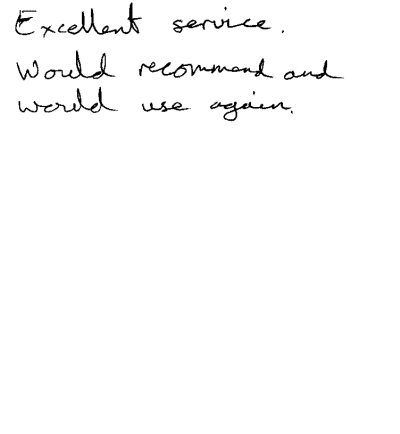 Excellent service.
Would recommend and
would use again.